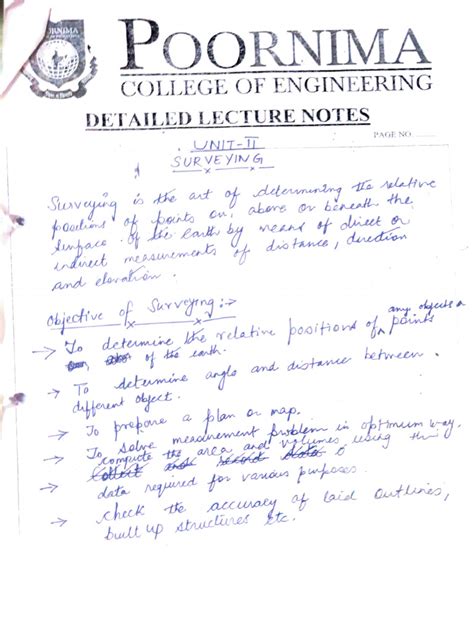 POORNIMA
COLLEGE OF ENGINEERING
DETAILED LECTURE NOTES
PAGE NO.
UNIT-II
SURVEYING
Surveying is the art of determining the relative
positions of points on, above or beneath the
surface of the earth by means of direct or
indirect measurements of distance, direction
and elevation.
Objective of Surveying:->
→ To determine the relative positions of any objects or points
of the earth.
→ To determine angle and distance between
different object.
→ To prepare a plan or map.
→ To solve measurement problem in optimum way.
→ compute the area and volumes, using the
data required for various purposes.
→ check the accuracy of laid outlines,
built up structures etc.